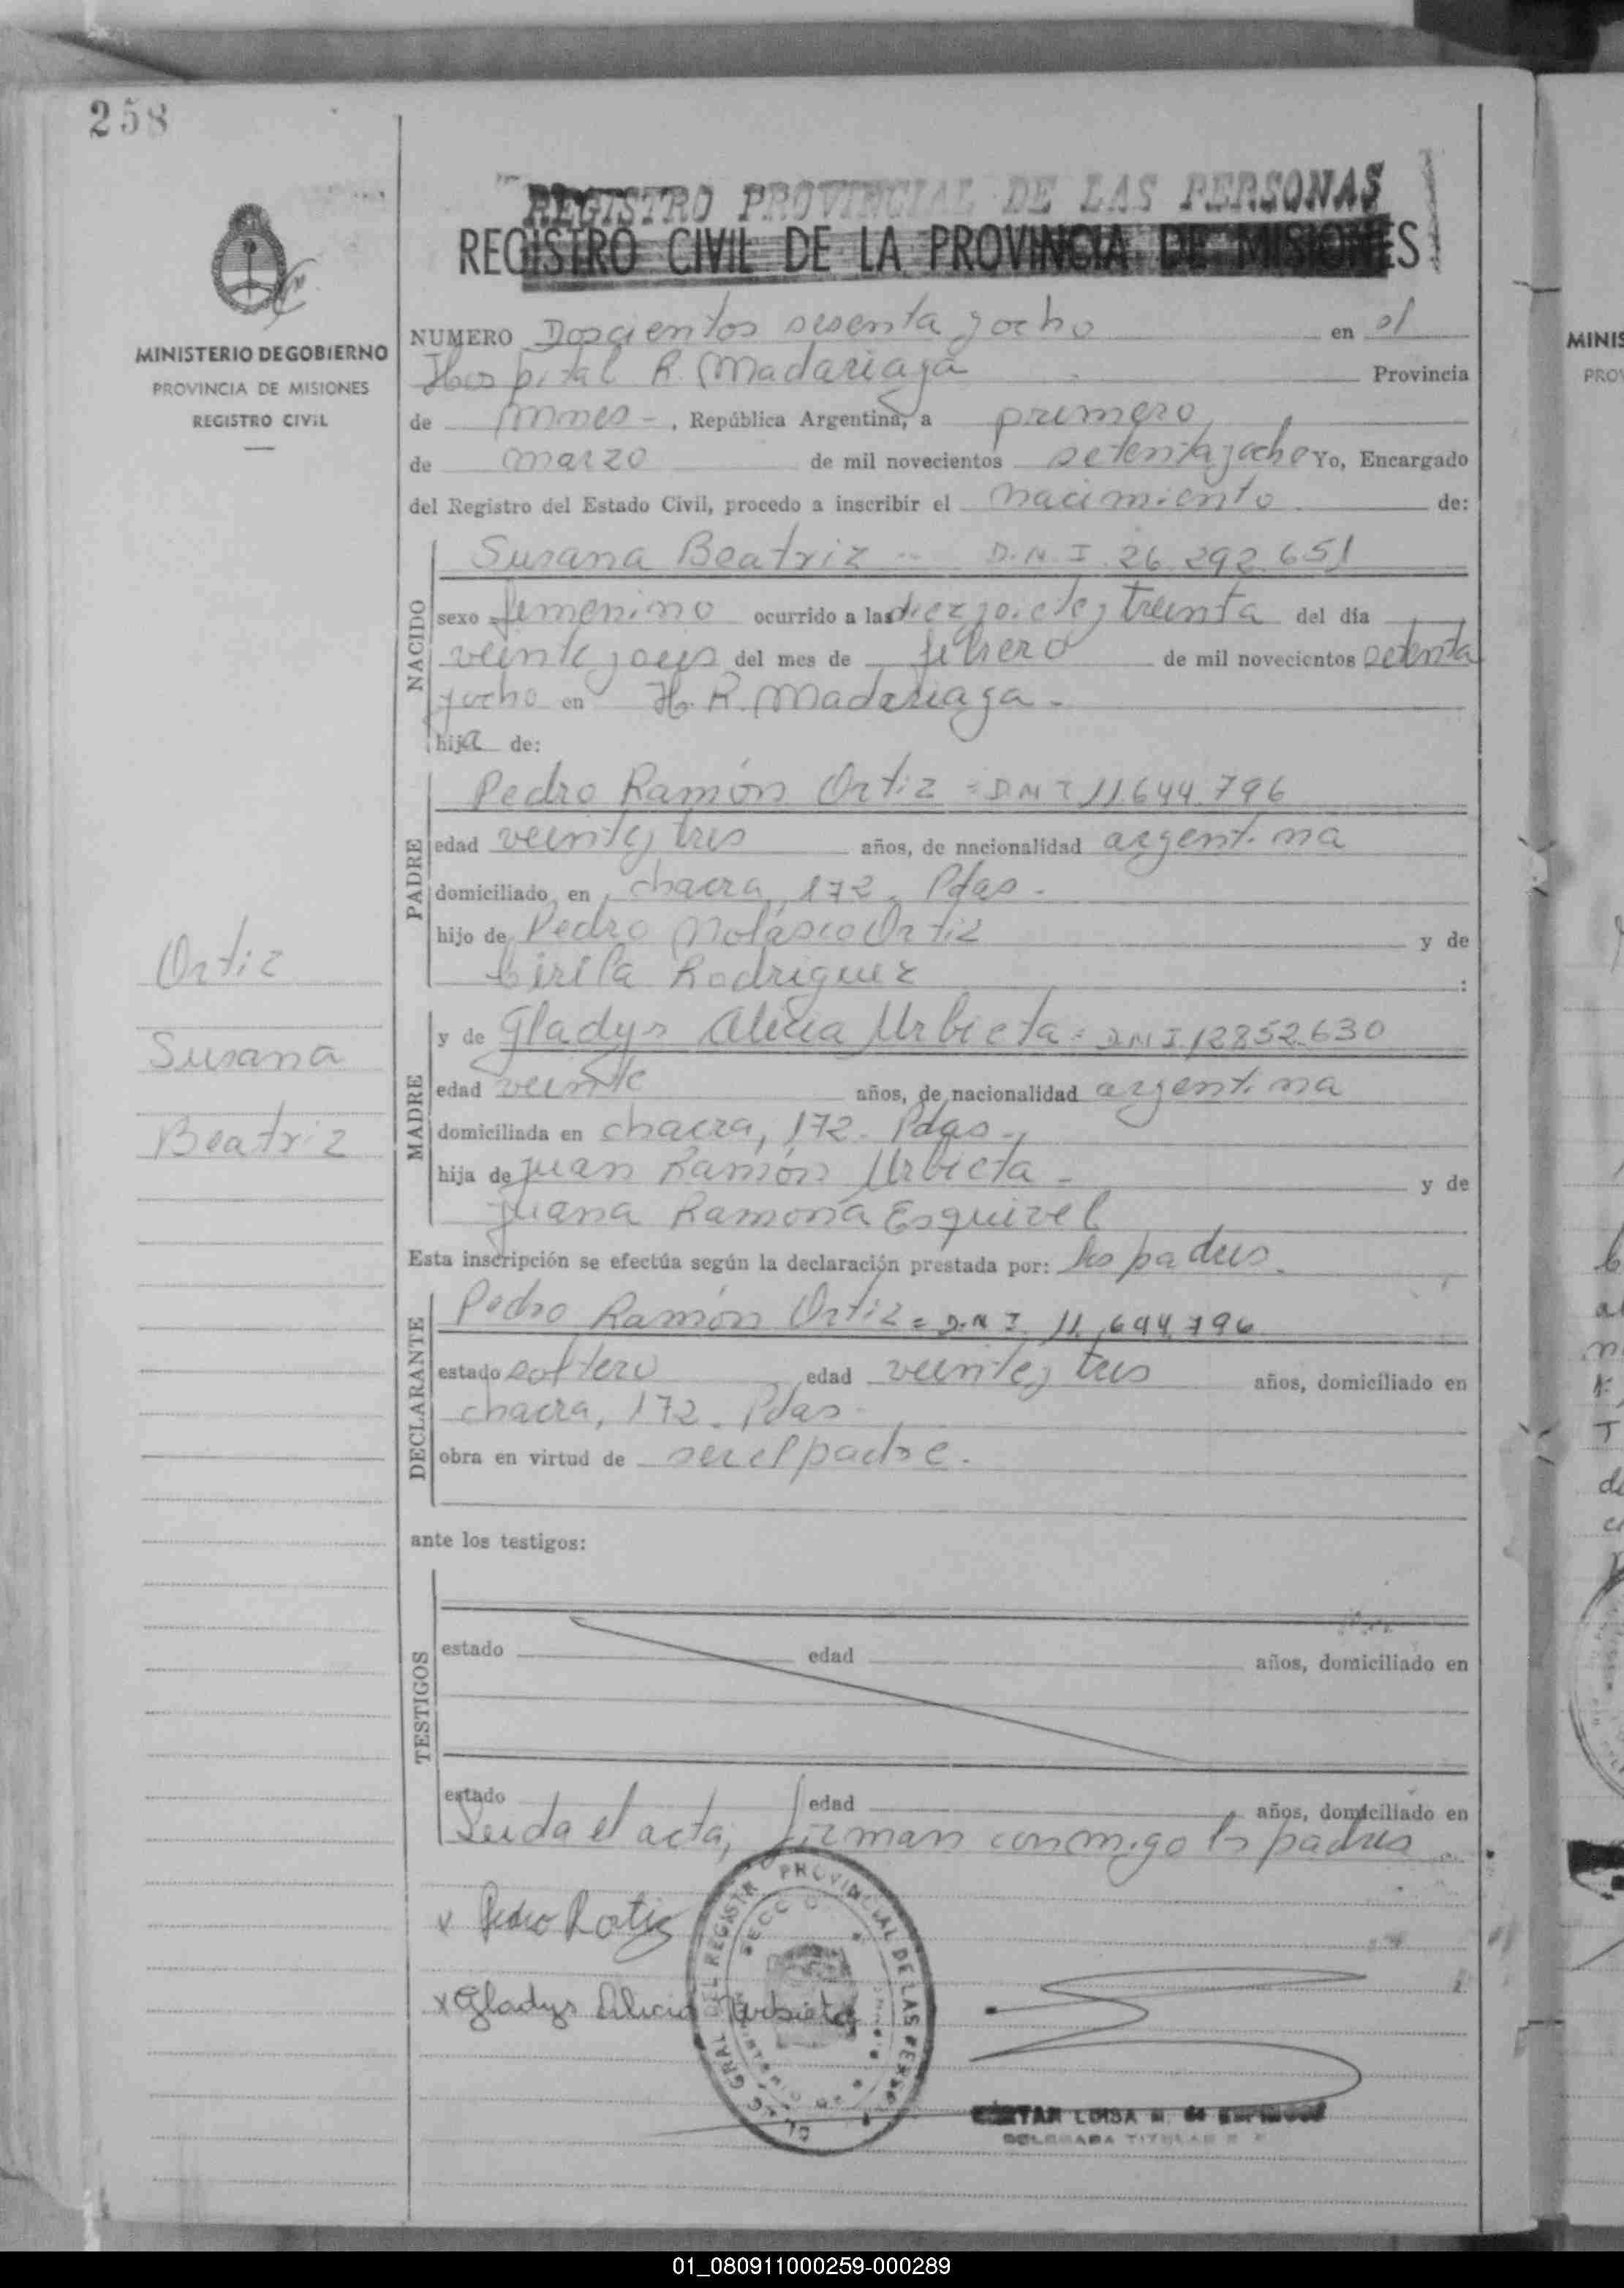 258
REGISTRO PROVINCIAL DE LAS PERSONAS
REGISTRO CIVIL DE LA PROVINCIA DE MISIONES
MINISTERIO DE GOBIERNO
PROVINCIA DE MISIONES
REGISTRO CIVIL
NUMERO Doscientos sesenta y ocho en el
Hospital R. Madariaga Provincia
de Mnes - , República Argentina, a primero
de marzo de mil novecientos setenta y ocho Yo, Encargado
del Registro del Estado Civil, procedo a inscribir el nacimiento de:
NACIDO
Susana Beatriz -- D.N.I. 26.292.651
sexo femenino ocurrido a las diez y siete y treinta del día
veinte y seis del mes de febrero de mil novecientos setenta
y ocho en H. R. Madariaga -
hija de:
PADRE
Pedro Ramón Ortiz = DNI 11.644.796
edad veinte y tres años, de nacionalidad argentina
domiciliado en chacra, 172. Pdas -
hijo de Pedro Nolasco Ortiz y de
Cirila Rodriguez :
Ortiz
Susana
Beatriz
MADRE
y de Gladys Alicia Urbieta = DNI 12852.630
edad veinte años, de nacionalidad argentina
domiciliada en chacra, 172. Pdas -
hija de Juan Ramón Urbieta - y de
Juana Ramona Esquivel
Esta inscripción se efectúa según la declaración prestada por: los padres.
DECLARANTE
Pedro Ramón Ortiz = D.N.I. 11.644.796
estado soltero edad veinte y tres años, domiciliado en
chacra, 172. Pdas -
obra en virtud de ser el padre.
ante los testigos:
TESTIGOS
estado edad años, domiciliado en
estado edad años, domiciliado en
Leida el acta, firman conmigo los padres
x Pedro R Ortiz
x Gladys Alicia Urbieta
GRAL DEL REGISTR PROVINCIAL DE LAS PERSO
LUISA
DELEGADA TITULAR
MINIS
PRO
01_080911000259-000289